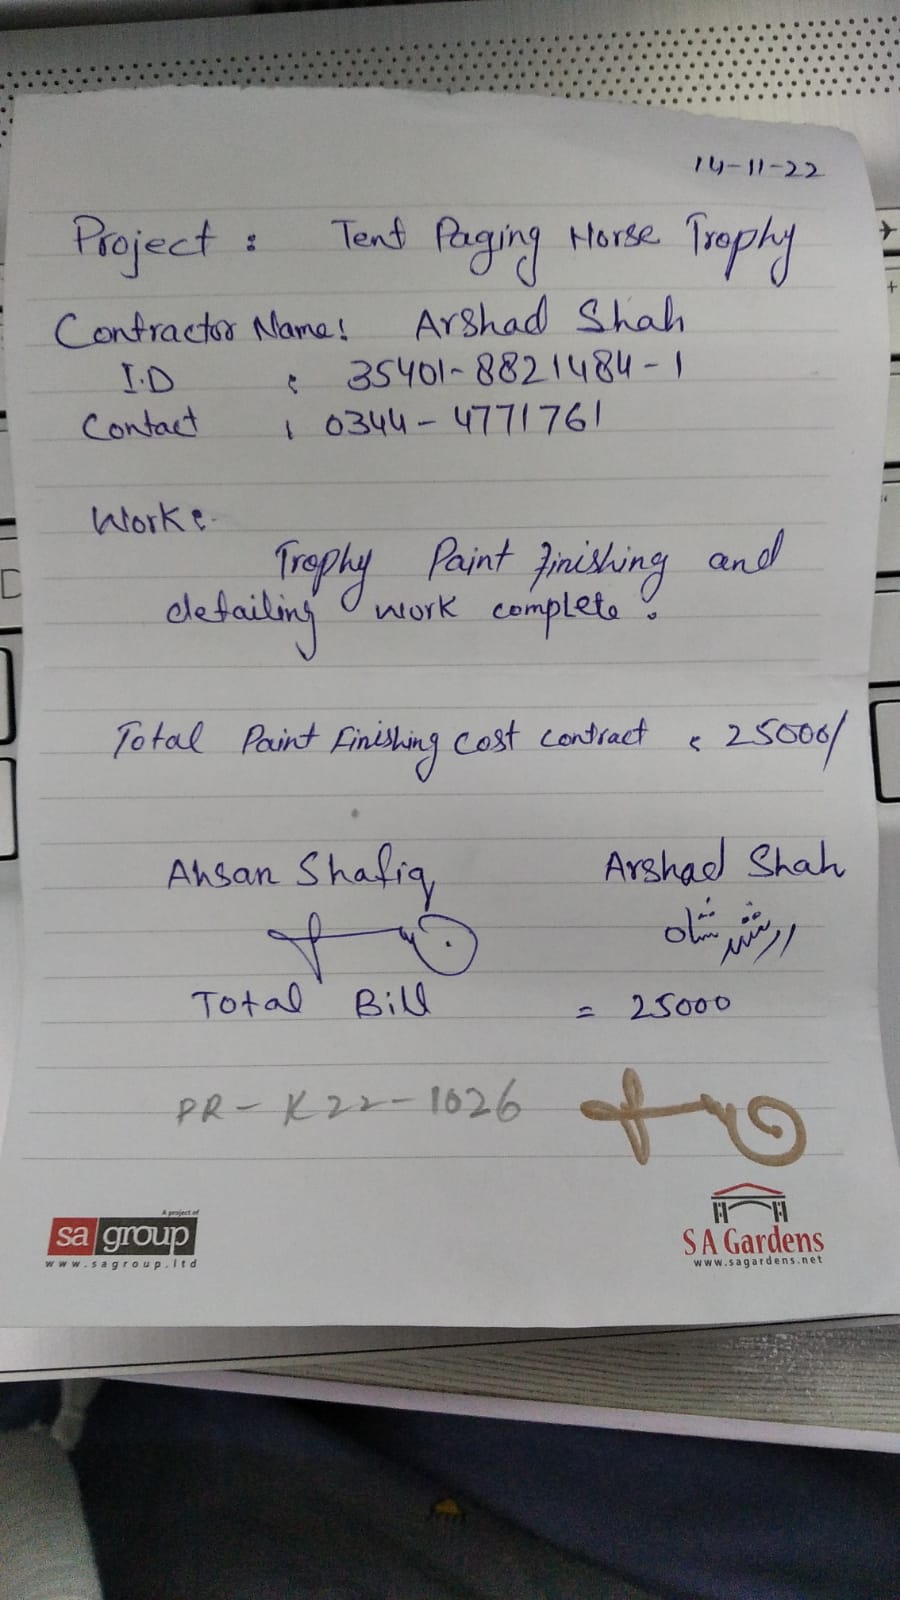 14-11-22
Project : Tent Paging Horse Trophy
Contractor Name: Arshad Shah
I.D : 35401-8821484-1
Contact : 0344-4771761
Work:-
Trophy Paint Finishing and
detailing work complete.
Total Paint Finishing cost contract : 25000/
Ahsan Shafiq Arshad Shah
ارشد شاہ
Total Bill = 25000
PR-K22-1026
A project of
sa group
www.sagroup.ltd
SA Gardens
www.sagardens.net